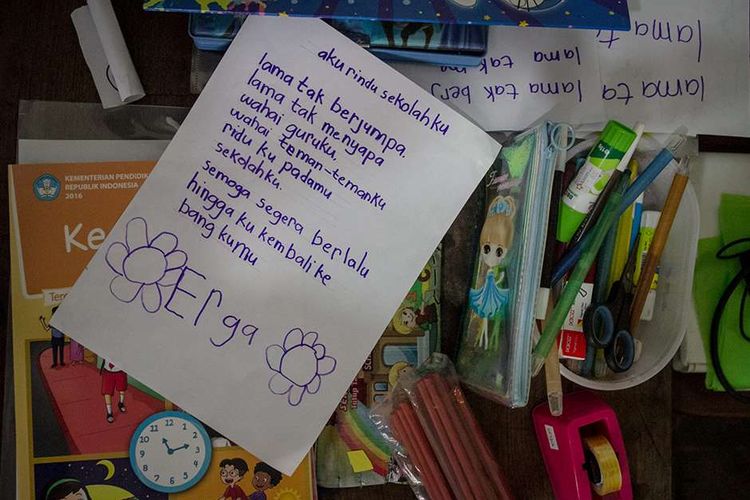 aku rindu sekolahku
lama tak berjumpa.
lama tak menyapa
wahai guruku,
wahai teman-temanku
ridu ku padamu
sekolahku.
semoga segera berlalu
hingga ku kembali ke
bang kumu
Erga
KEMENTERIAN PENDIDIK
REPUBLIK INDONESIA
2016
Ke
Tem
lama ta
lama tak
lama tak berj
lama ta